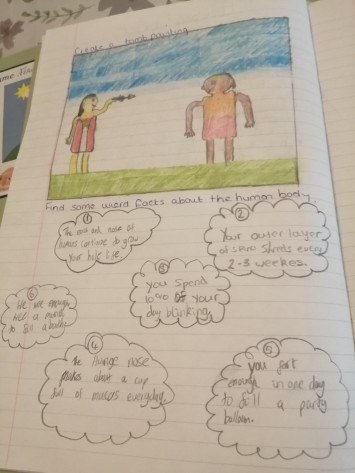 Create a tomb painting
Find some weird facts about the human body.
①
The and nose of
humans continue to grow
Your hole life.
②
Your outer layer
of skin shreds every
2-3 weekes.
③
you spend
10% of your
day blinking.
⑥
We
to fill a
④
the nose
makes about a cup
full of mucos everyday.
⑤
you fart
enough in one day
to fill a party
balloon.